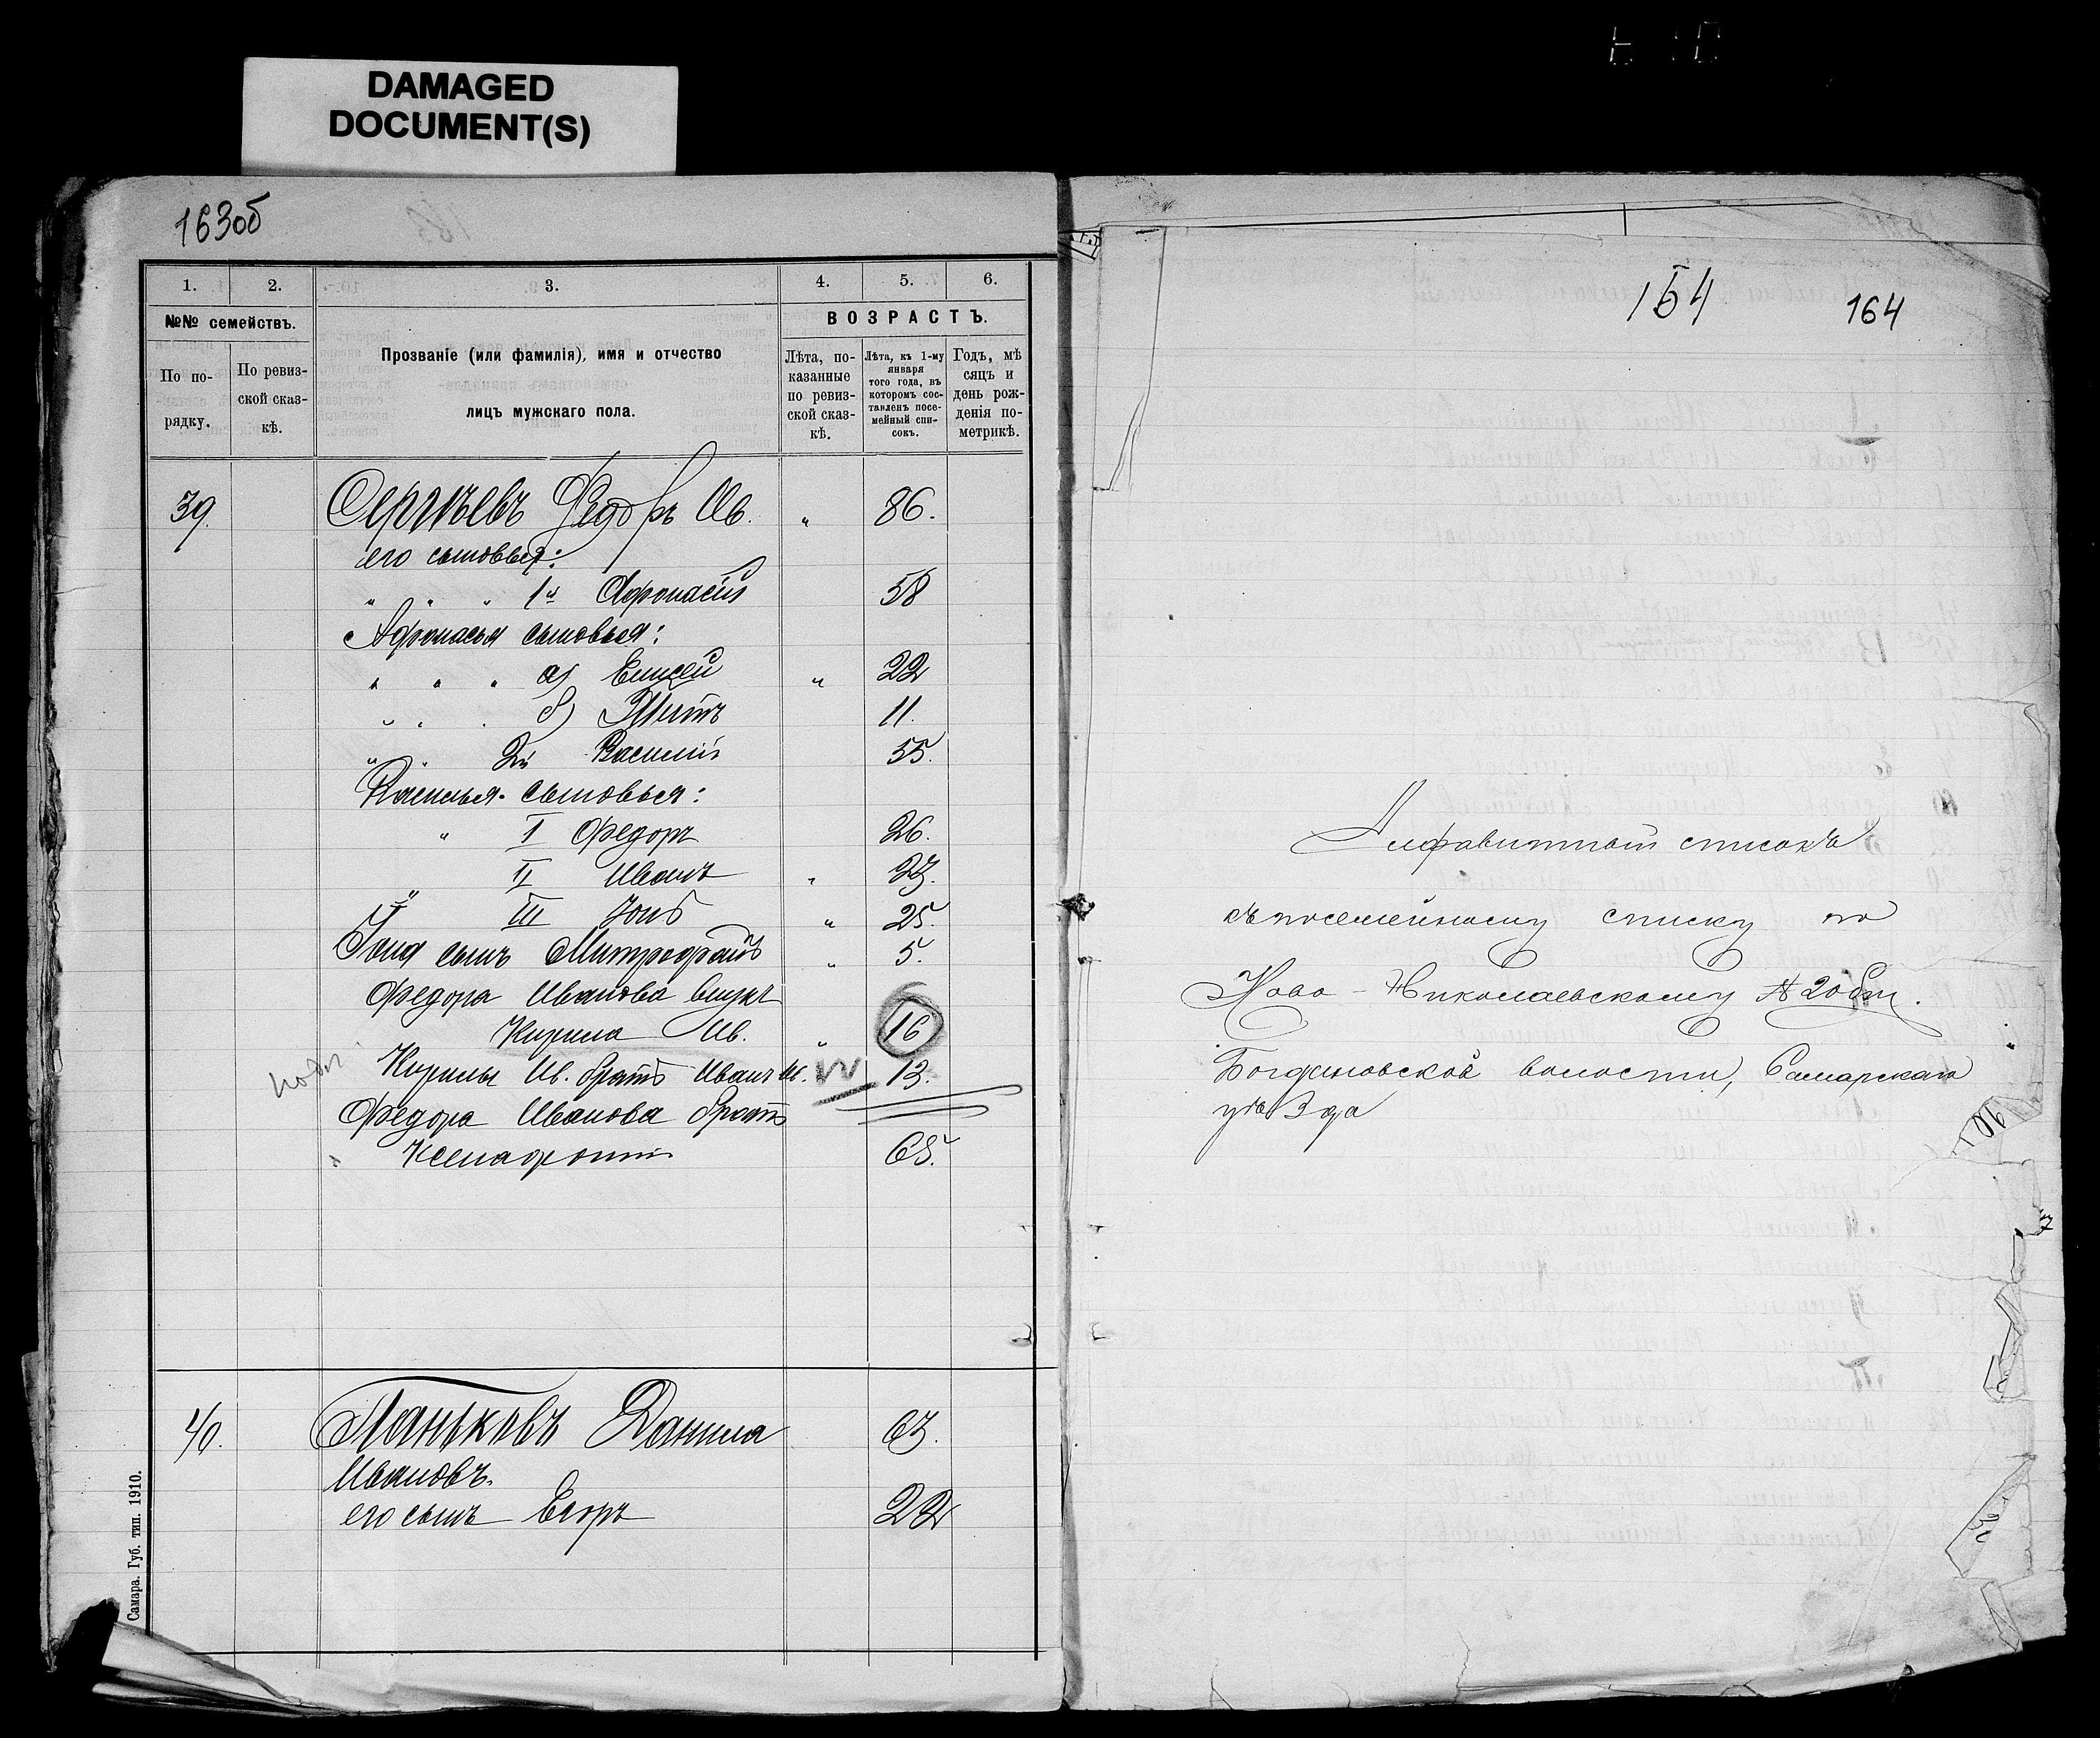 DAMAGED
DOCUMENT(S)
163об
1. 2. 3. 4. 5. 6.
№№ семействъ.
По по-
рядку.
По ревиз-
ской сказ-
кѣ.
Прозваніе (или фамилія), имя и отчество
лицъ мужскаго пола.
ВОЗРАСТЪ.
Лѣта, по-
казанные
по ревиз-
ской сказ-
кѣ.
Лѣта, къ 1-му
января
того года, въ
которомъ сос-
тавленъ посе-
мейный спи-
сокъ.
Годъ, мѣ
сяцъ и
день рож-
денія по-
метрикѣ.
39. Сергѣевъ Федоръ Ив. " 86.
его сыновья:
" " " 1й Афонасій 58
Афонасья сыновья:
" " " а) Елисей " 22
" " " б) Титъ 11.
" " 2й Василій 55.
Василья сыновья:
" I Федоръ 26.
" II Иванъ " 23.
" III Іовъ " 25.
Іова сынъ Митрофанъ " 5.
Федора Иванова внукъ
Кирила Ив. " 16
Кирилы Ив. братъ Иванъ Ив. 13.
Федора Иванова братъ
" Ксенафонтъ 65.
40. Паньковъ Данила 63.
Ивановъ.
его сынъ Егоръ 22
Самара. Губ. тип. 1910.
154
164
Алфавитный списокъ
къ посемейному списку по
Ново-Николаевскому № 2 общ.
Богдановской волости, Самарскаго
уѣзда